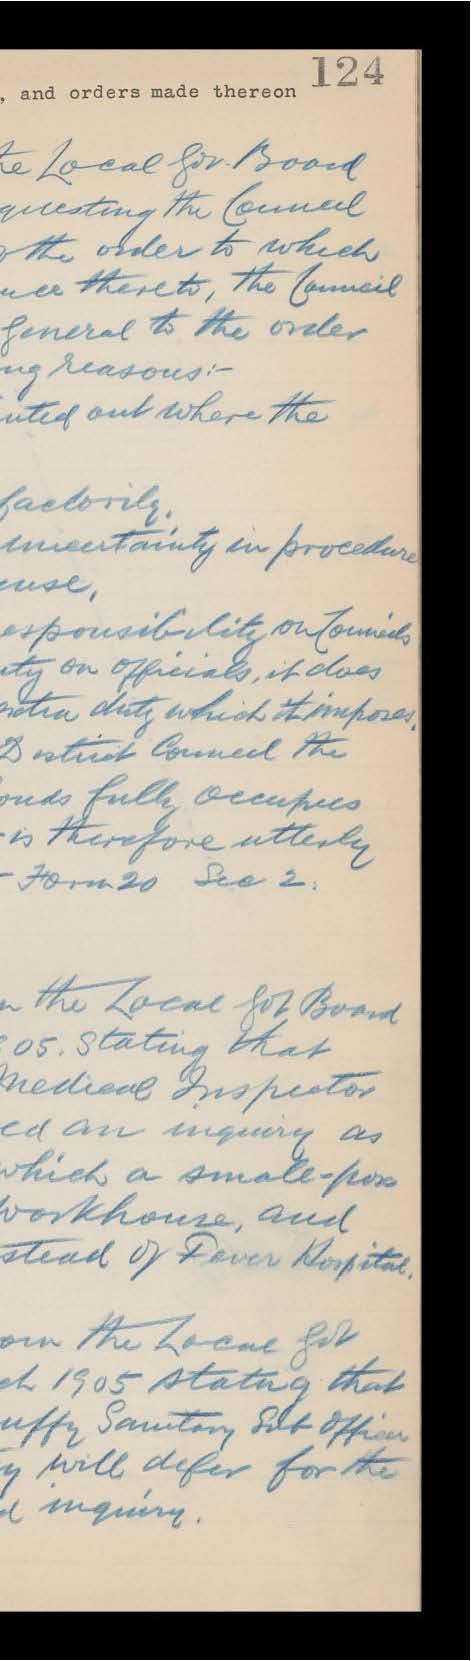 , and orders made thereon 124
he Local Gov. Board
questing the Council
the order to which
nce thereto, the Council
General to the order
ng reasons:-
inted out where the
factorily.
uncertainty in procedure
ense,
esponsibility on Councils
uty on officials, it does
extra duty which it imposes.
District Council the
onds fully occupies
is therefore utterly
- Form 20 Sec 2.
m the Local Got Board
905. Stating that
Medical Inspector
ed an inquiry as
which a small-pox
workhouse, and
stead of Fever Hospital.
om the Local Got
ch 1905 stating that
uffy Sanitary Sub Officer
y will defer for the
d inquiry.